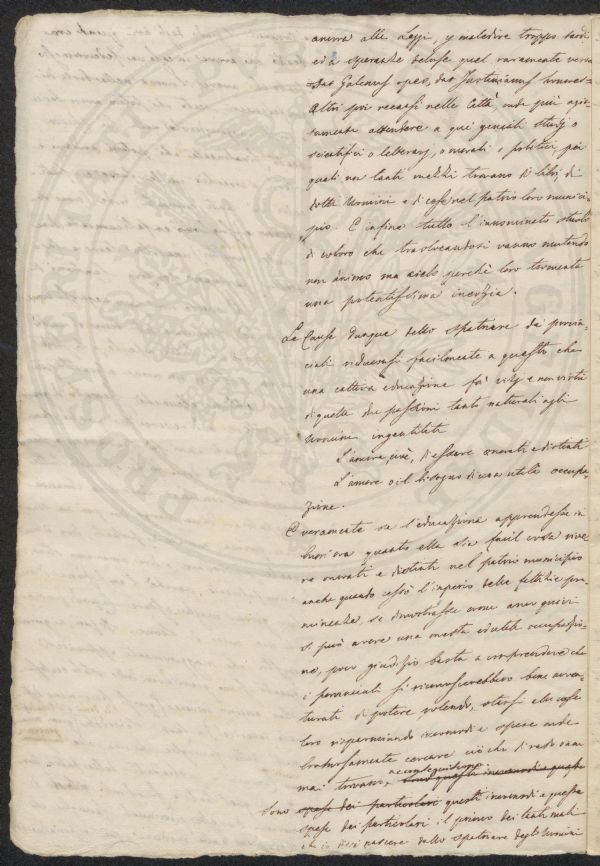 ancora alle Leggi, e maledire troppo tardi
ed a speranze deluse quel raramente vero
Dat Galenus opes, dat Justinianus honores
Altri poi recansi nelle Città, onde più agia
tamente attendere a que' geniali studj o
scientifici o letterarj, o morali o politici, pei
quali non tanti mezzi trovano di libri, di
dotti Uomini e di case nel patrio loro munici
pio. E infine tutto l'innominato stuolo
di coloro che traslocandosi vanno mutando
non animo ma cielo perchè loro tormenta
una potentissima inerzia.
Le Cause dunque dello spatriare de' provin
ciali riduconsi facilmente a queste che
una cattiva educazione fa vizj e non virtù
di quelle due passioni tanto naturali agli
uomini ingentiliti
L'amore, cioè, di essere onorati e distinti
L'amore o il bisogno di una utile occupa
zione.
E veramente se l'educazione apprendesse in
buon'ora quanto ella sia facil cosa vive
re onorati e distinti nel patrio municipio
anche quando cessò l'imperio delle fittizie pro
minenze, se dimostrasse come anco quivi
si può avere una onesta ed utile occupazio
ne, poco giudizio basta a comprendere che
i provinciali si riconoscerebbero bene avven
turati di potere volendo, starsi alle case
loro risparmiando incomodi e spese onde
cercare ciò che di rado non
mai trovano
sono spese dei particolari questi incomodi e queste
spese dei particolari il primo dei tanti mali
che io dissi nascere dallo spatriare degli uomini